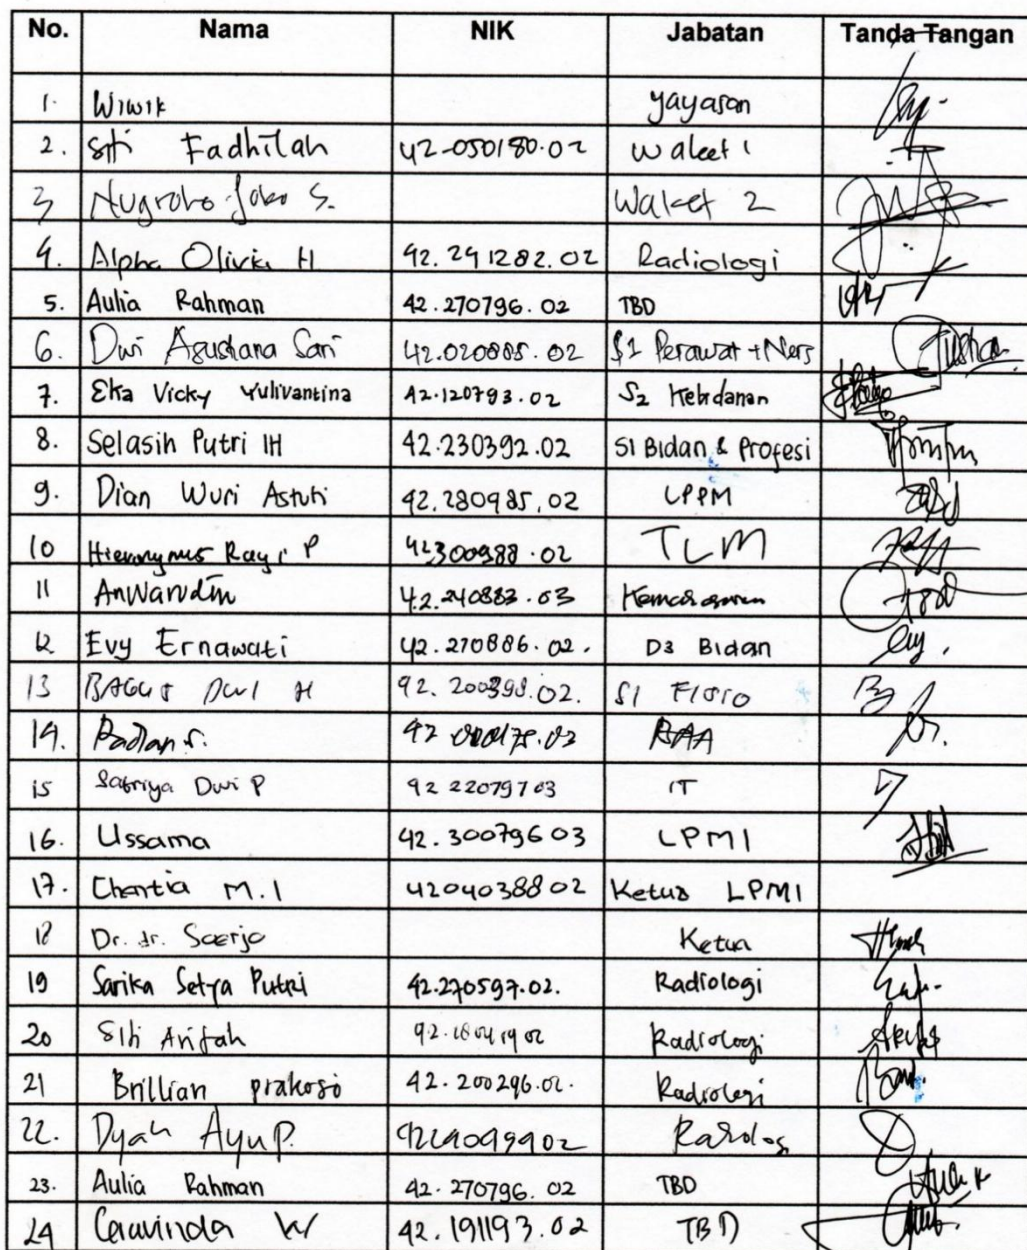 No. Nama NIK Jabatan Tanda Tangan
1. Wiwik yayasan
2. Siti Fadhilah 42-050180.02 Waket 1
3 Nugroho Joko S. Waket 2
4. Alpha Olivia H 42.241282.02 Radiologi
5. Aulia Rahman 42.270796.02 TBD
6. Dwi Agustiana Sari 42.020885.02 S1 Perawat + Ners
7. Eka Vicky Yulivantina 42.120793.02 S2 Kebidanan
8. Selasih Putri IH 42.230392.02 S1 Bidan & Profesi
9. Dian Wuri Astuti 42.280985.02 LPPM
10 Hieronymus Rayi P 42300988.02 TLM
11 Anwarudin 42.240883.03
12 Evy Ernawati 42.270886.02. D3 Bidan
13 BAGUS DWI H 42.200398.02. S1 FISIO
14. Radian S. RAA
15 Satriya Dwi P 42 220797 03 IT
16. Ussama 42.300796 03 LPMI
17. Chentia M.I 42040388 02 Ketua LPMI
18 Dr. dr. Soerjo Ketua
19 Sarika Setya Putri 42.270597.02. Radiologi
20 Siti Arifah Radiologi
21 Brillian prakoso 42.200296.02. Radiologi
22. Dyah Ayu P.
23. Aulia Rahman 42.270796.02 TBD
24 W 42.191193.02 TBD